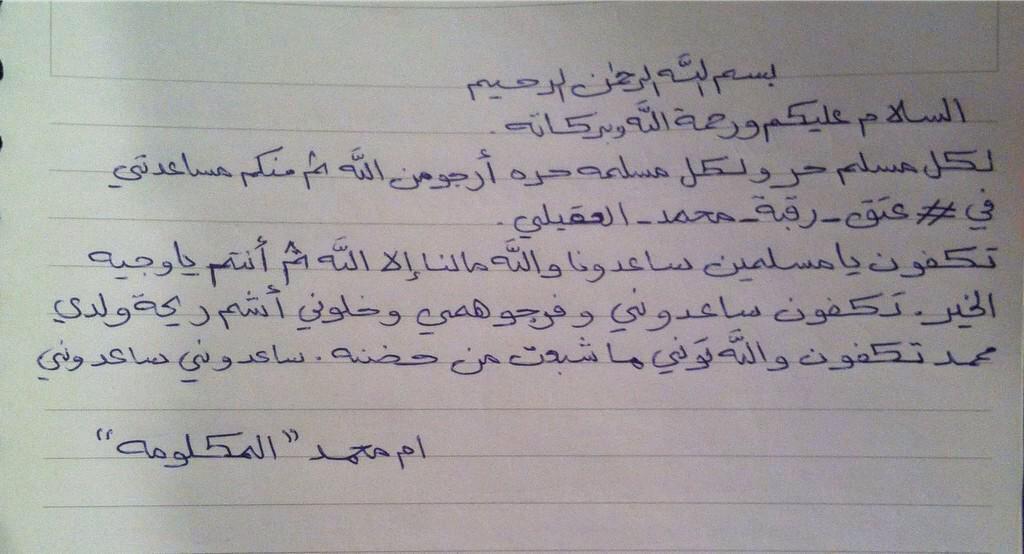 بسم اللَّه الرحمٰن الرحيم
السلام عليكم ورحمة اللَّه وبركاته .
لكل مسلم حر ولكل مسلمه حره أرجو من اللَّه ثم منكم مساعدتي
في # عتق_رقبة_محمد_العقيلي .
تكفون يا مسلمين ساعدونا واللَّه مالنا إلا اللَّه ثم أنتم يا وجيه
الخير . تكفون ساعدوني وفرجو همي وخلوني أشم ريحة ولدي
محمد تكفون واللَّه توني ما شبعت من حضنه . ساعدوني ساعدوني
ام محمد "المكلومه"